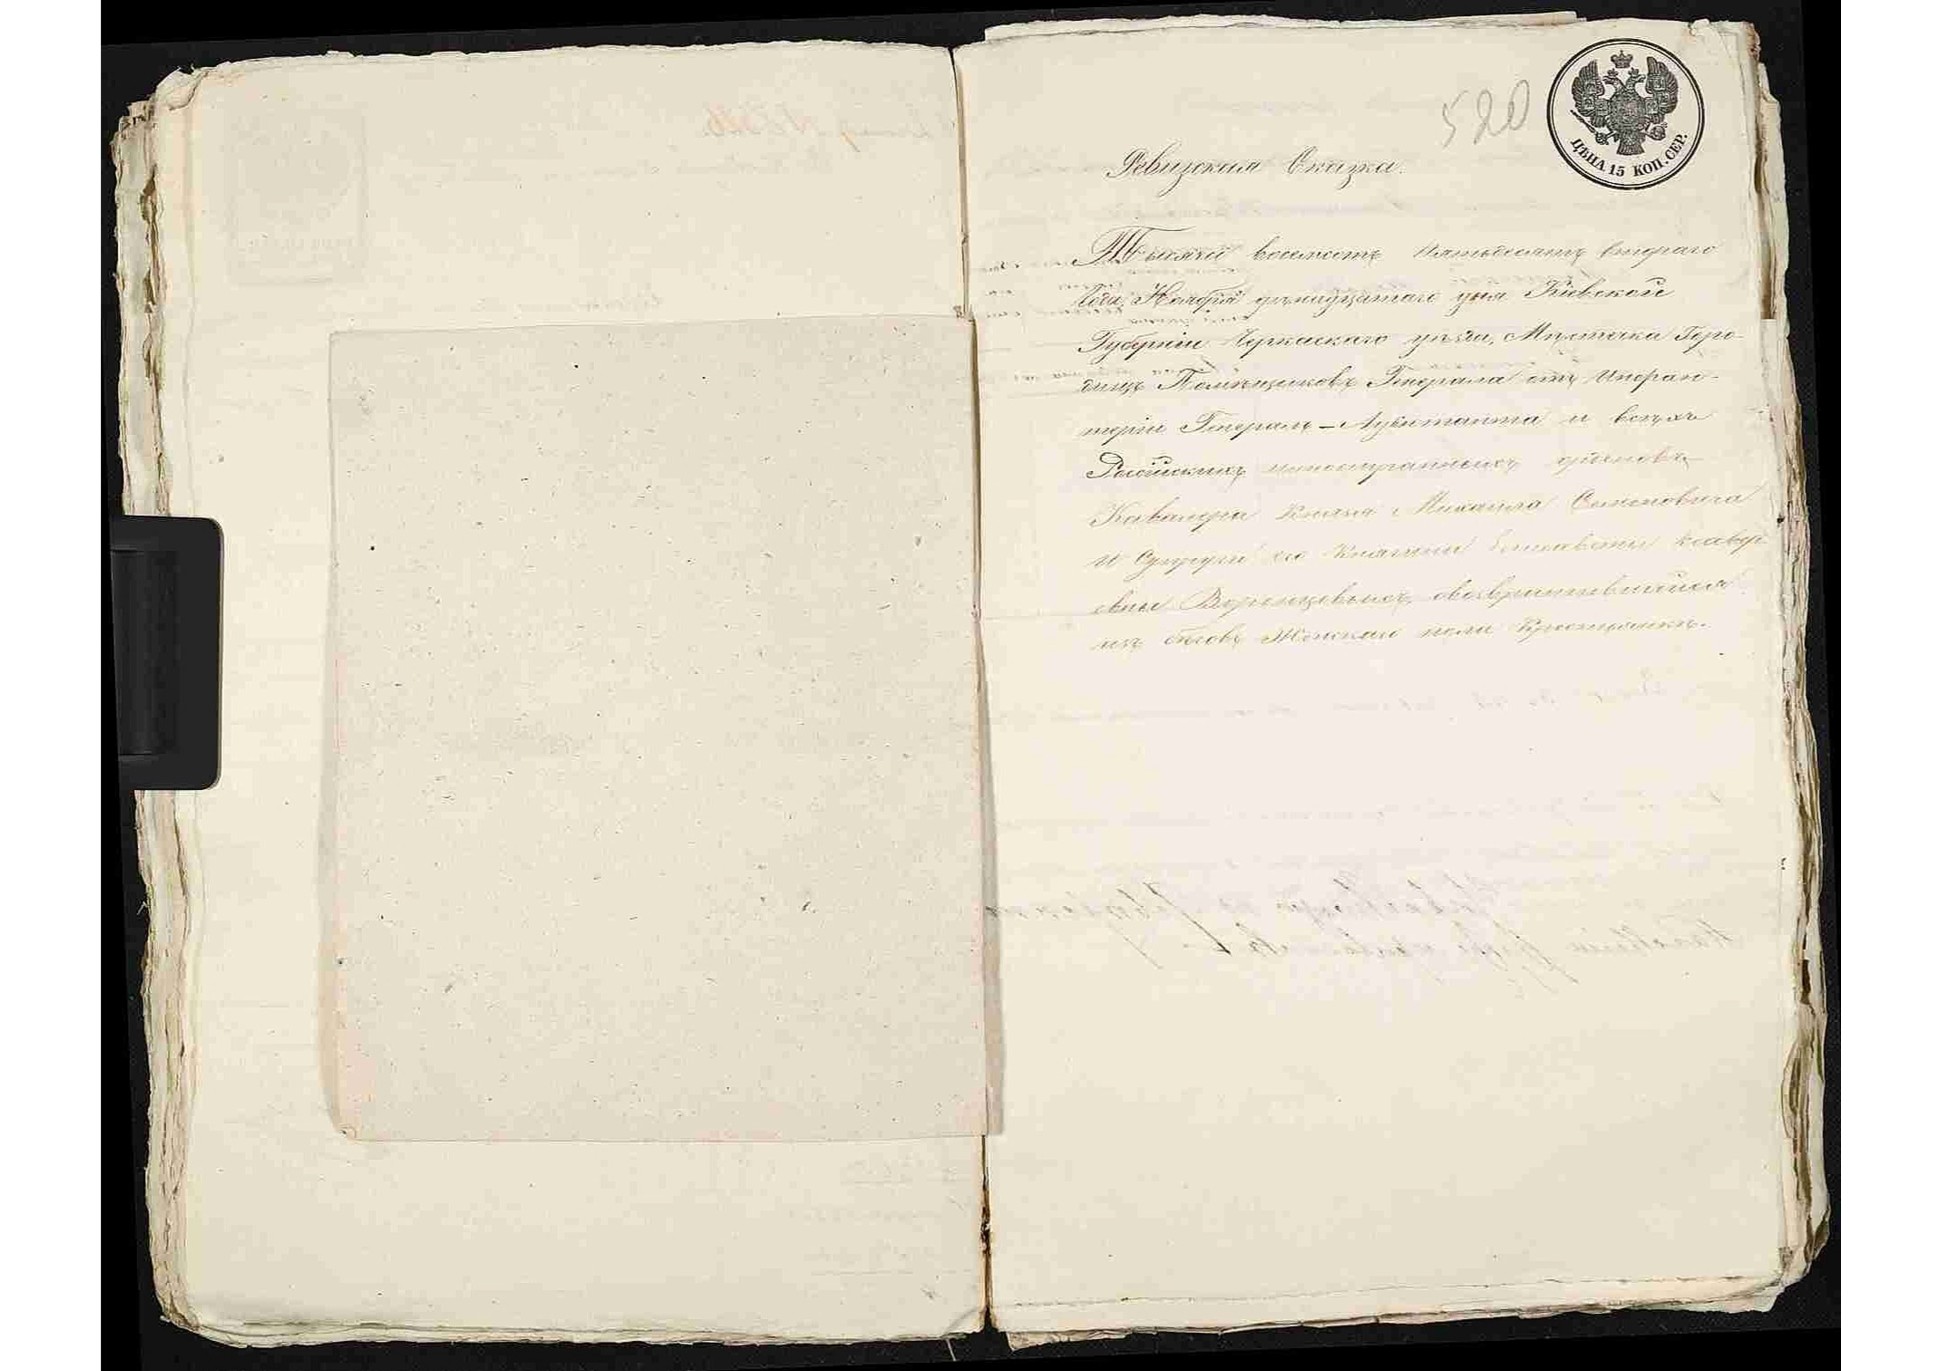 520
ЦѢНА 15 КОП. СЕР.
Ревизская Сказка.
Тысячи восемсотъ пятьдесятъ втораго
Года, Ноября дня Кіевской
Губерніи Черкаскаго уѣзда, Мѣстечка Горо-
дищъ Помѣщиковъ Генерала отъ Инфан-
теріи Генералъ-Адъютанта и всѣхъ
Россійскихъ орденовъ
Кавалера Князя Михаила Семеновича
и Супруги его Княгини Елисаветы Ксавер
евны Воронцовыхъ, овозвратившийся
изъ бѣговъ Женскаго пола Крестьянки.